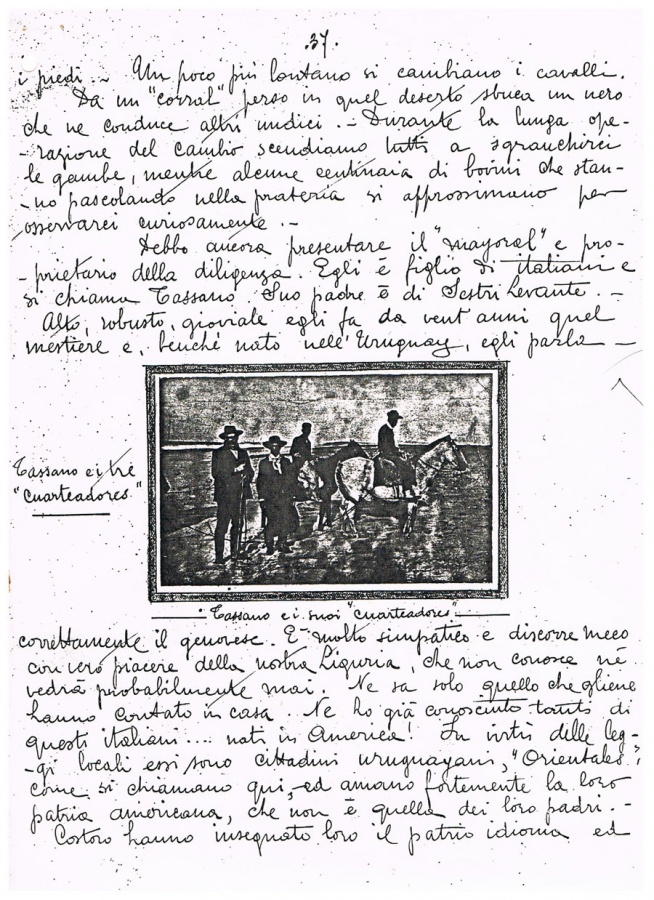 .37.
i piedi .. Un poco più lontano si cambiano i cavalli.
Da un "corral" perso in quel deserto sbuca un nero
che ne conduce altri undici . - Durante la lunga ope-
- razione del cambio scendiamo tutti a sgranchirci
le gambe, mentre alcune centinaia di bovini che stan-
- no pascolando nella prateria si approssimano per
osservarci curiosamente . -
Debbo ancora presentare il "mayoral" e pro-
- prietario della diligenza. Egli è figlio di italiani e
si chiama Tassano. Suo padre è di Sestri Levante. -
Alto, robusto, gioviale egli fa da vent'anni quel
mestiere e, benchè nato nell'Uruguay, egli parla -
Tassano e i tre
"cuarteadores"
Tassano e i suoi "cuarteadores"
correttamente il genovese. È molto simpatico e discorre meco
con vero piacere della nostra Liguria, che non conosce nè
vedrà probabilmente mai. Ne sa solo quello che gliene
hanno contato in casa. Ne ho già conosciuto tanti di
questi italiani .... nati in America! In virtù delle leg-
- gi locali essi sono cittadini uruguayani, "Orientales",
come si chiamano qui, ed amano fortemente la loro
patria americana, che non è quella dei loro padri. -
Costoro hanno insegnato loro il patrio idioma ed